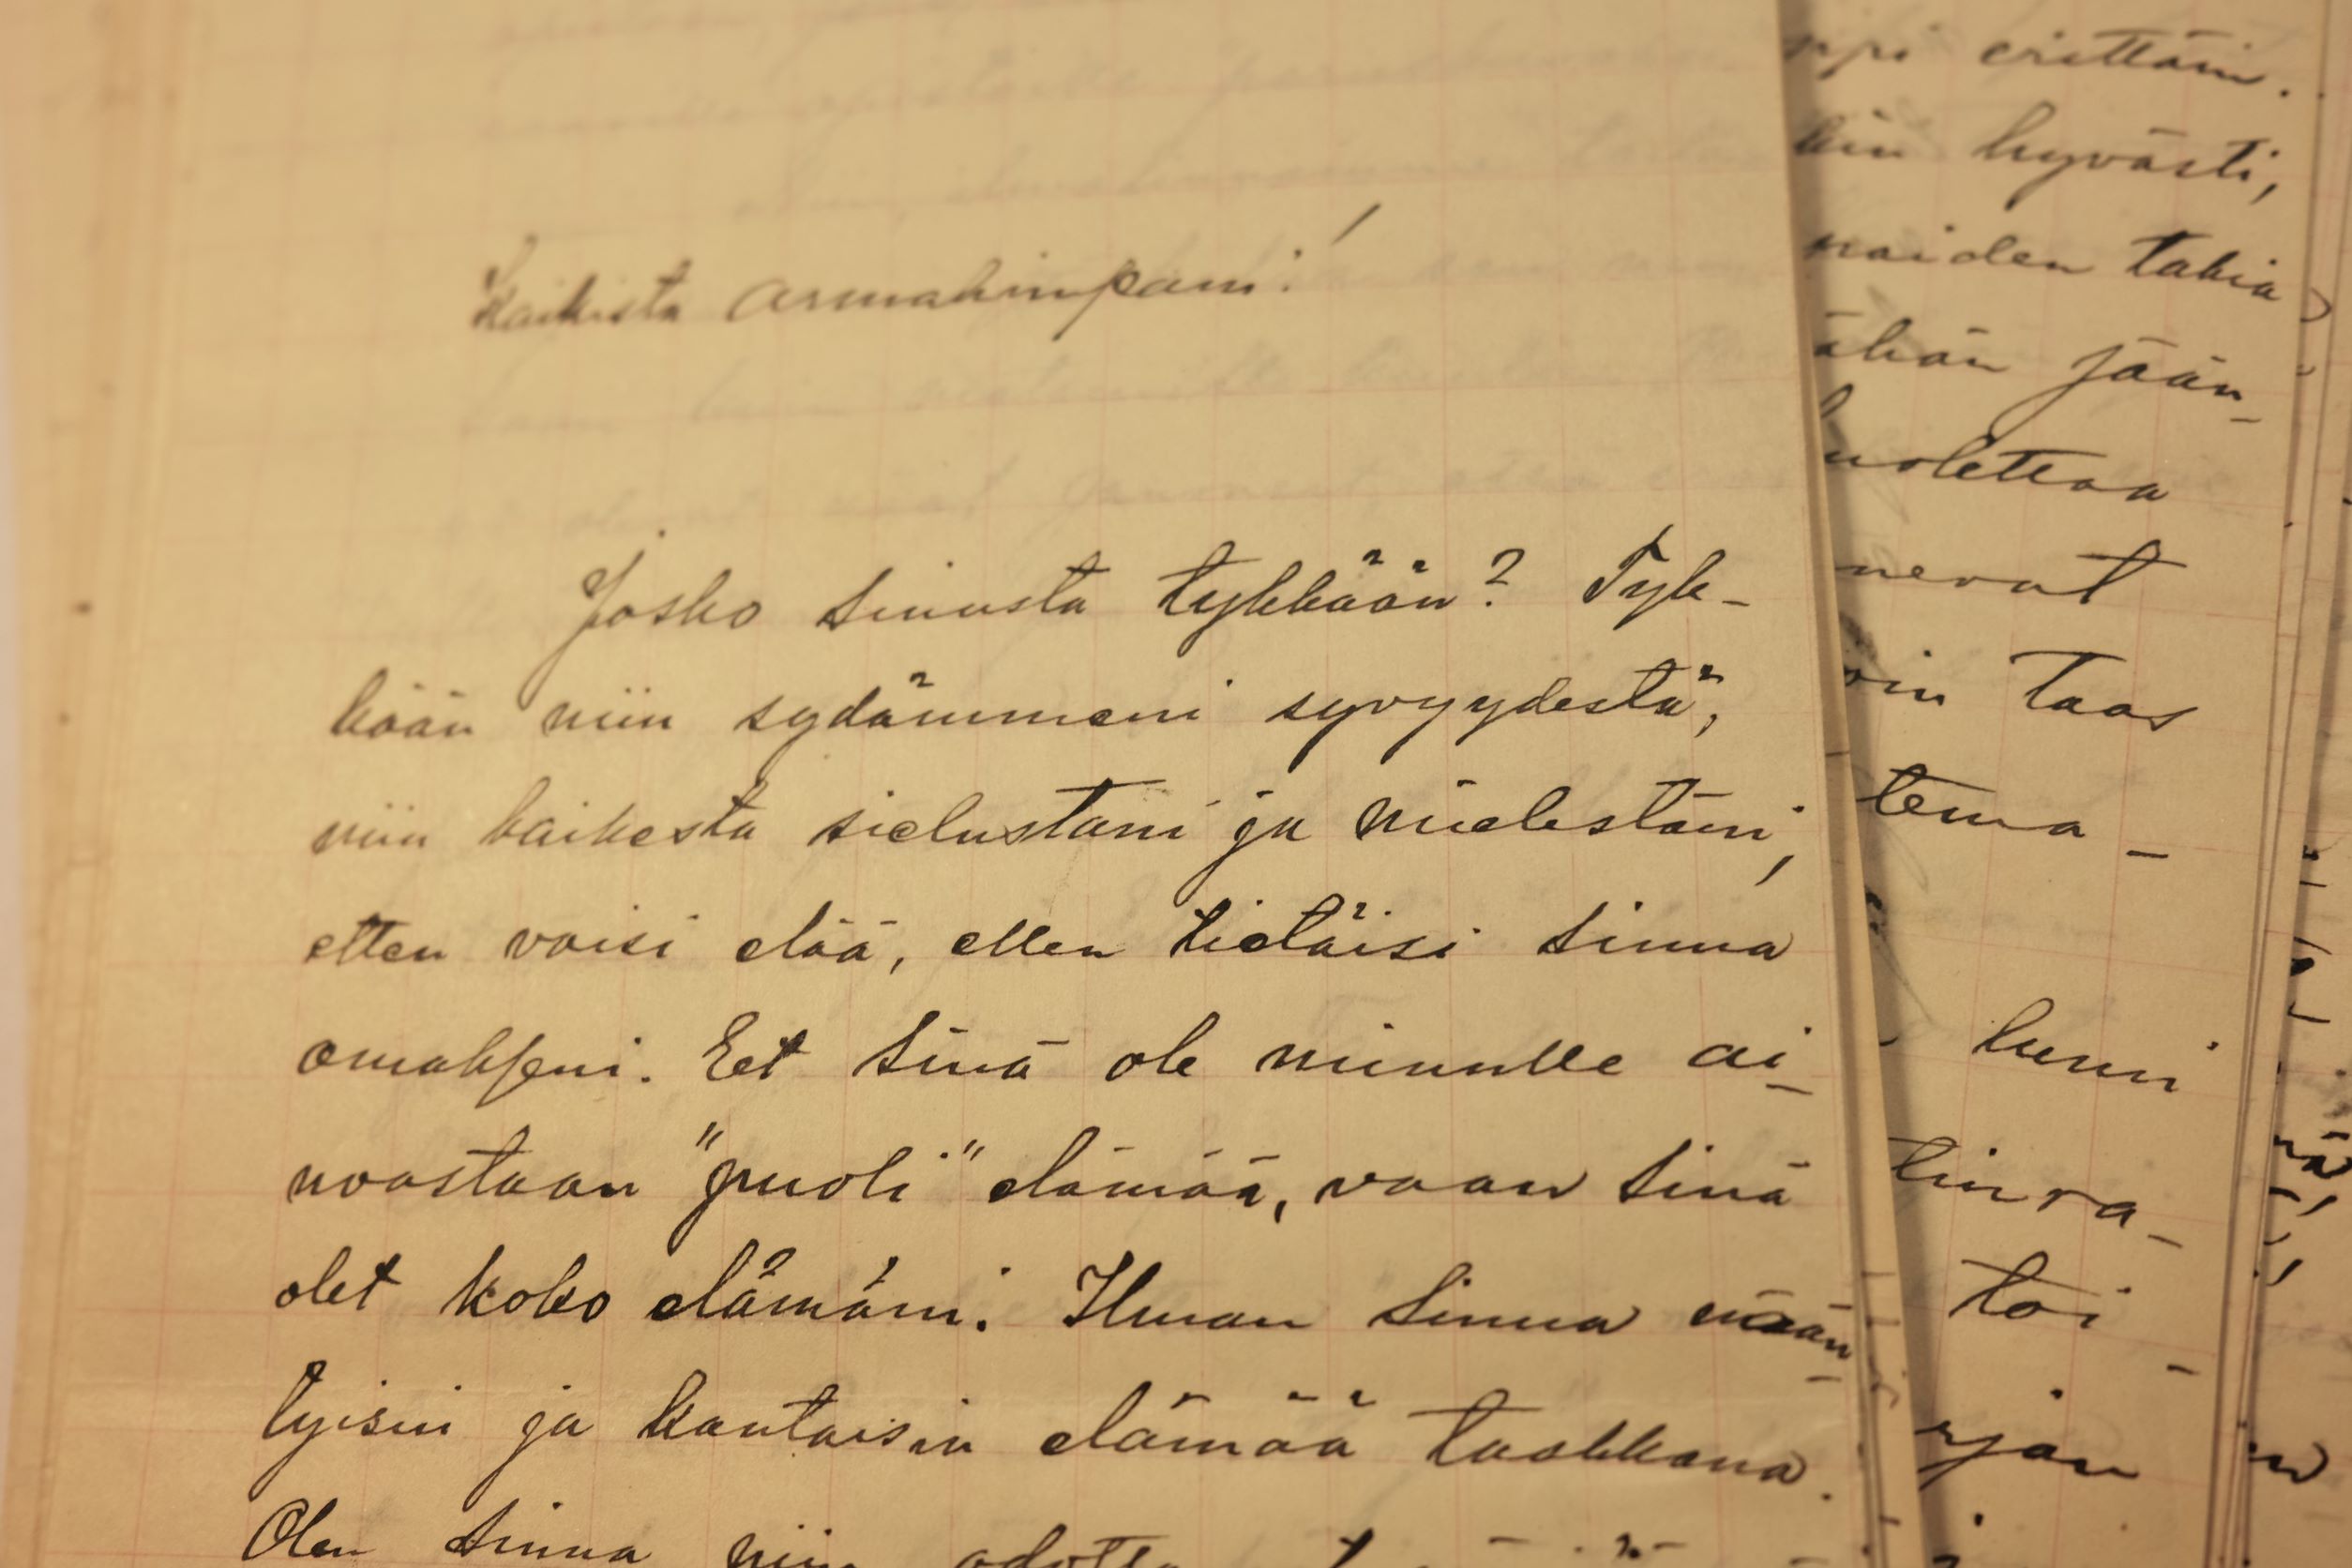 Kaikista armahimpani!
Josko sinusta tykkään? Tyk-
kään niin sydämmeni syvyydestä,
niin kaikesta sielustani ja mielestäni,
etten voisi elää, ellen tietäisi sinua
omakseni. Eet sinä ole minulle ai-
noastaan "puoli" elämää, vaan sinä
olet koko elämäni. Ilman sinua nään-
tyisin ja kantaisin elämää taakkana.
Olen sinua niin
erittäin.
hyvästi,
noiden takia
jään-
nevat
taas
tema-
kuni
toi-